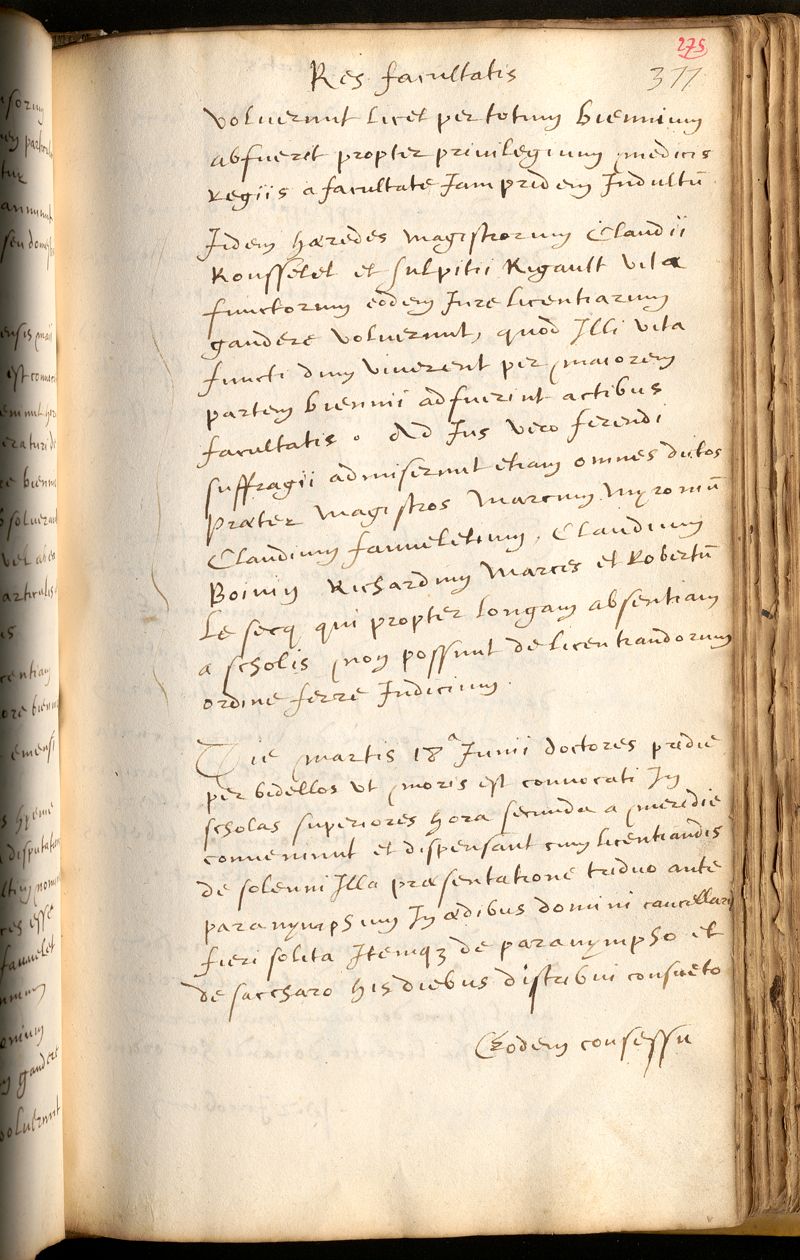 275
Res facultatis
377
voluerunt licet per totum biennium
abfuerit propter privilegium medicis
Regiis a facultate Jam pridem Indultū
Jidem hæredes magistrorum Claudii
Rousselet et sulpitii Rigault vita
functorum eodem Jure licentiarum
gaudere voluerunt, quod Illi vita
functi dum viverent per maiorem
partem biennii adfuerint actibus
facultatis. Ad Jus vero ferendi
suffragii admiserunt etiam omnes dictos
præter magistros Marcum myromū
Claudium fauveletium, Claudium
Boivin Richardum Marces et Robertū
le secq qui propter longam absentiam
a scholis non possunt de licentiandorum
ordine ferre Judicium.
Die martis 18ª Junii doctores pridie
per bidellos vt moris est convocati In
scholas superiores hora secunda a meridie
convenerunt et dispensant cum licentiandis
de solenni Illa præsentatione triduo ante
paranympsum In ædibus domini cancellarii
fieri solita Itemqȝ de paranympho et
de saccharo his diebus distribui consueto
Eodem consessu